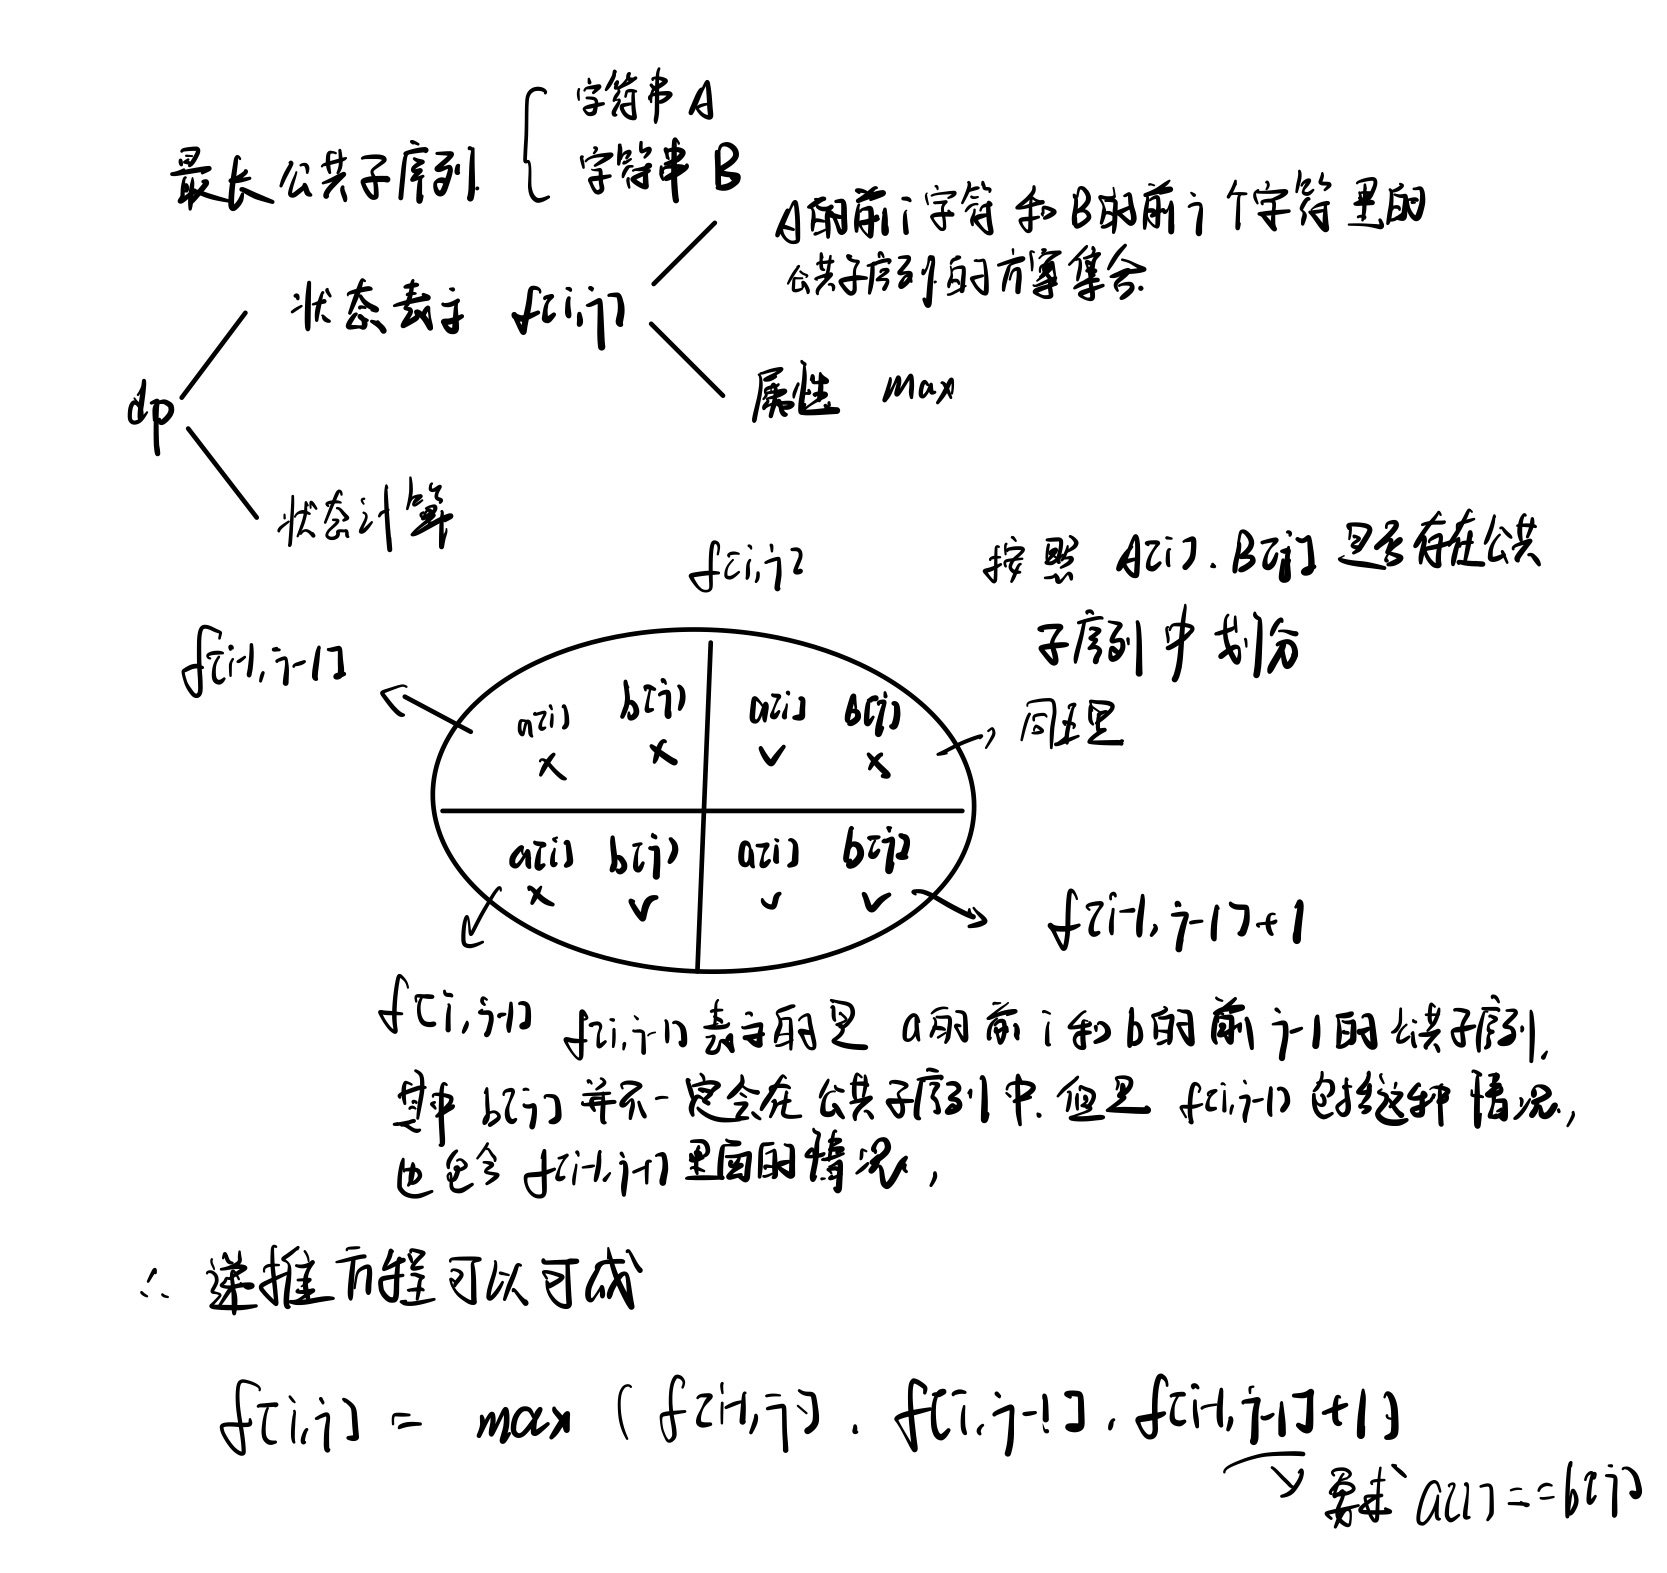 最长公共子序列
字符串 A
字符串 B
A的前i字符和B的前j个字符里的
公共子序列的方案集合.
状态表示 f[i,j]
属性 max
dp
状态计算
f[i,j]
按照 A[i].B[j] 是否存在公共
子序列中划分
f[i-1,j-1]
a[i] b[j] a[i] b[j]
× × ✓ ×
同左里
a[i] b[j] a[i] b[j]
× ✓ ✓ ✓
f[i-1,j-1]+1
f[i,j-1] f[i,j-1]表示的是 a的前i和b的前j-1的公共子序列,
其中 b[j] 并不一定会在公共子序列中.但是 f[i,j-1] 包括这种情况,
也包含 f[i-1,j-1] 里面的情况,
∴ 递推方程可以可成
f[i,j] = max ( f[i-1,j] . f[i,j-1] , f[i-1,j-1]+1)
要求 a[i]==b[j]